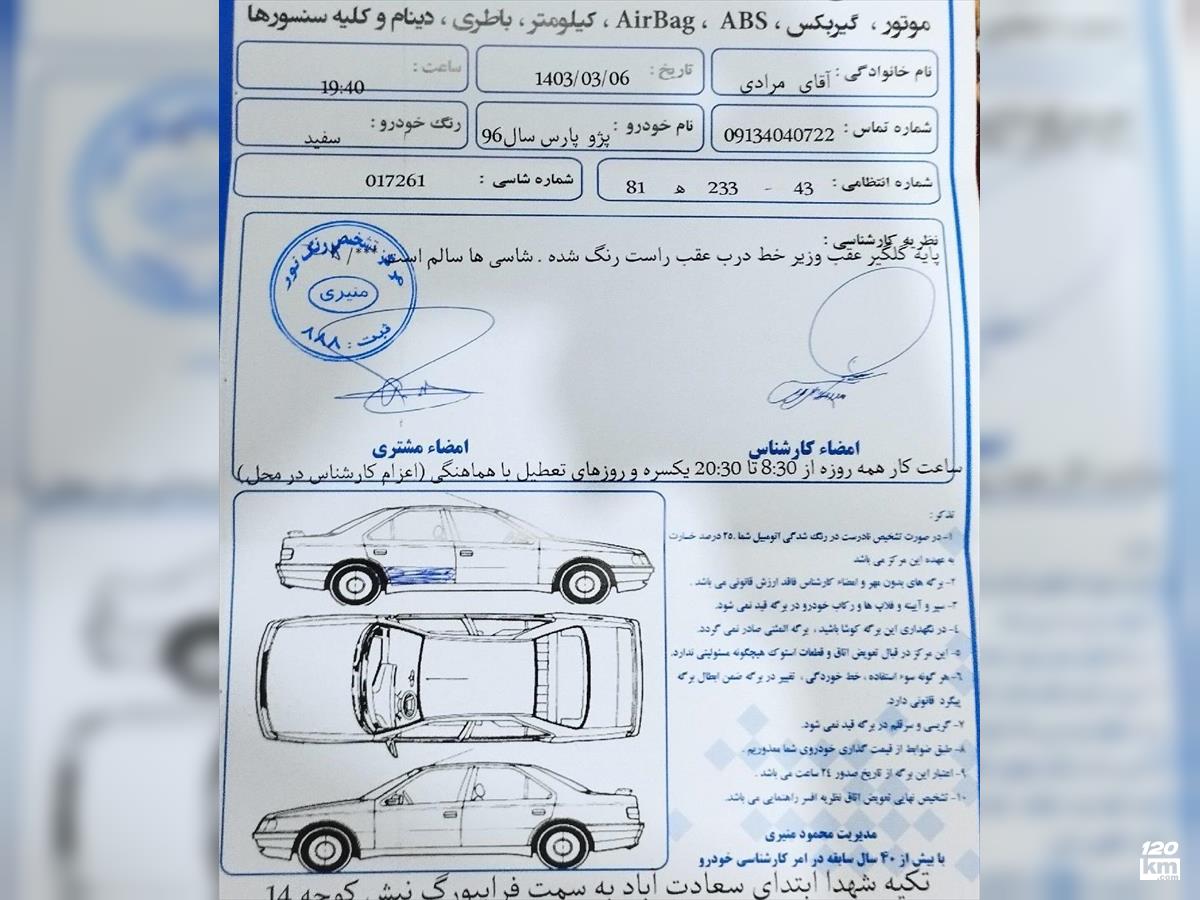 موتور ، گیربکس ، AirBag ، ABS ، کیلومتر ، باطری ، دینام و کلیه سنسورها
نام خانوادگی : آقای مرادی
تاریخ : 1403/03/06
ساعت : 19:40
شماره تماس : 09134040722
نام خودرو : پژو پارس سال96
رنگ خودرو : سفید
شماره انتظامی : 43 - 233 ه 81
شماره شاسی : 017261
نظریه کارشناسی :
پایه گلگیر عقب وزیر خط درب عقب راست رنگ شده . شاسی ها سالم است
مرکز تشخیص رنگ نور
منیری
ثبت : ۸۸۸
امضاء کارشناس
امضاء مشتری
ساعت کار همه روزه از 8:30 تا 20:30 یکسره و روزهای تعطیل با هماهنگی (اعزام کارشناس در محل)
تذکر :
۱- در صورت تشخیص نادرست در رنگ شدگی اتومبیل شما ۲۵ درصد خسارت
به عهده این مرکز می باشد
۲- برگه های بدون مهر و امضاء کارشناس فاقد ارزش قانونی می باشد .
۳- سپر و آیینه و فلاپ ها و رکاب خودرو در برگه قید نمی شود.
۴- در نگهداری این برگه کوشا باشید ، برگه المثنی صادر نمی گردد.
۵- این مرکز در قبال تعویض اتاق و قطعات استوک هیچگونه مسئولیتی ندارد.
۶- هر گونه سوء استفاده ، خط خوردگی ، تغییر در برگه ضمن ابطال برگه
پیگرد قانونی دارد.
۷- گریسی و سرقلم در برگه قید نمی شود.
۸- طبق ضوابط از قیمت گذاری خودروی شما معذوریم .
۹- اعتبار این برگه از تاریخ صدور ۲۴ ساعت می باشد .
۱۰- تشخیص نهایی تعویض اتاق نظریه افسر راهنمایی می باشد.
مدیریت محمود منیری
با بیش از ۴۰ سال سابقه در امر کارشناسی خودرو
تکیه شهدا ابتدای سعادت آباد به سمت فرایبورگ نبش کوچه 14
120
km
.com